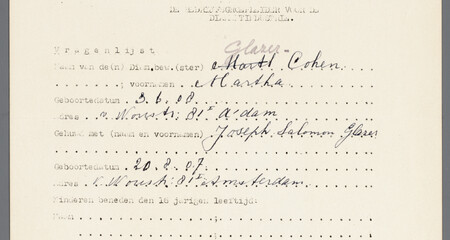 VOOR DE
Vragenlijst Glazer-
Naam van de(n) Dien.bew.(ster) Cohen
; voornamen Martha
Geboortedatum 3.6.08
adres v. Woustr. 81 A'dam
Gehuwd met (naam en voornamen) Joseph Salomon Glazer
Geboortedatum 20.2.07.
adres v. Woustr. 81 Amsterdam
Kinderen beneden den 16 jarigen leeftijd:
Naam